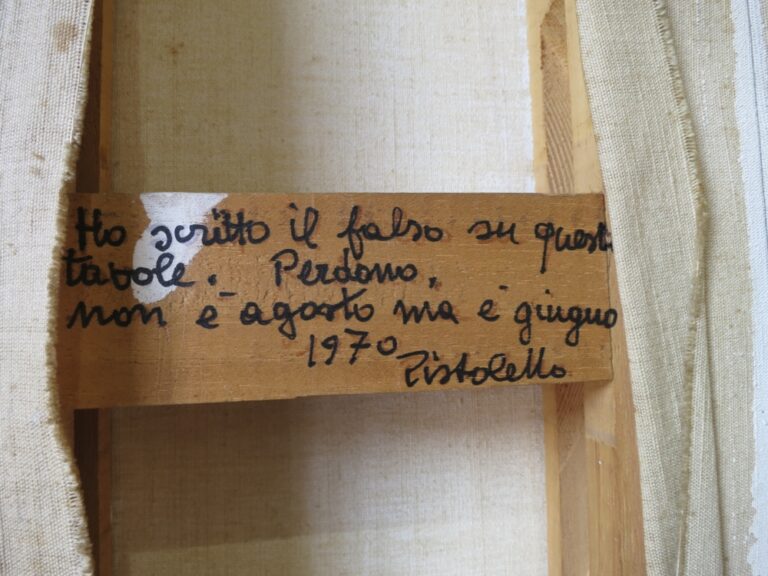 Ho scritto il falso su quest
tavole. Perdono,
non è agosto ma è giugno
1970
Pistoletto